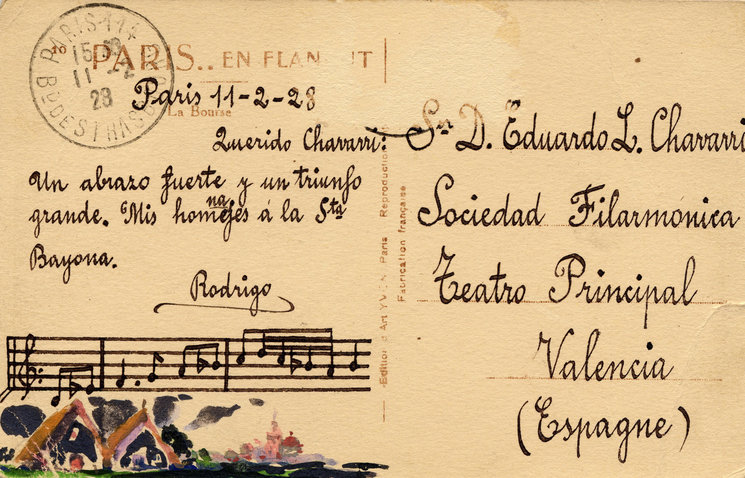 PARIS.. EN FLANANT
La Bourse
PARIS
15
11
28
Paris 11-2-28
Querido Chavarri:
Un abrazo fuerte y un triunfo
grande. Mis homenajes á la Sta
Bayona.
Rodrigo
Edition d'Art YVON Paris Reproduction
Fabrication française
Sr D. Eduardo L. Chavarri
Sociedad Filarmónica
Teatro Principal
Valencia
(Espagne)